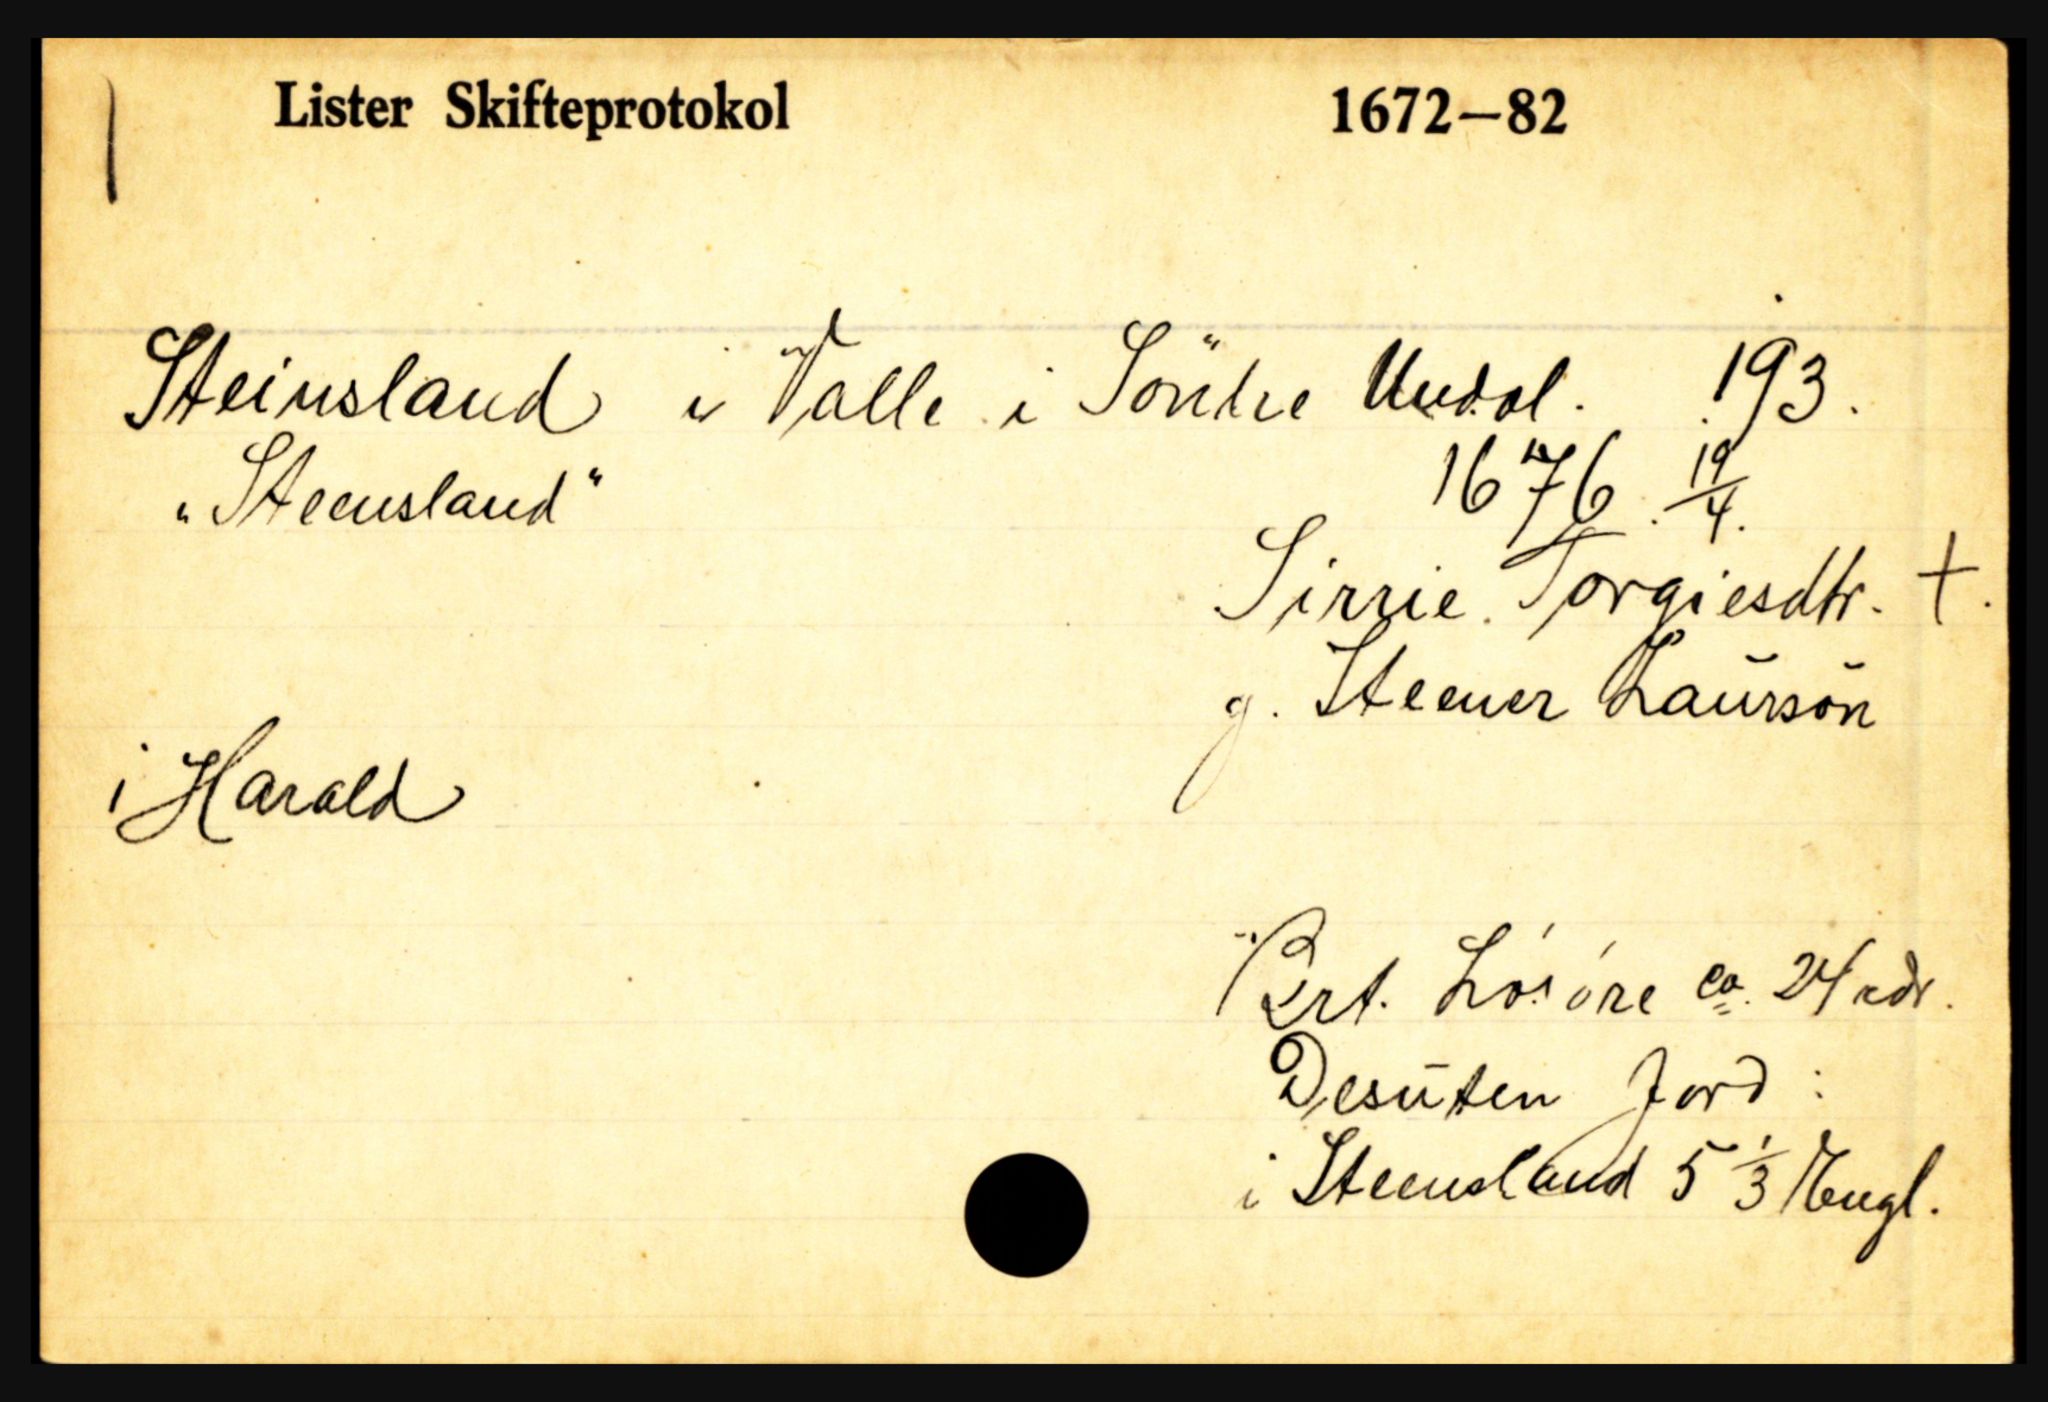 Lister Skifteprotokol 1672—82
Steinsland i Valle i Söndre Undal. 193.
"Steensland" 1676 19/4.
Sirrie Torgiesdtr. +.
g. Steener Laursön
i Harald
Brt. Lösöre ca. 24 rdr.
Desuten Jord:
i Steensland 5 1/3 Engl.